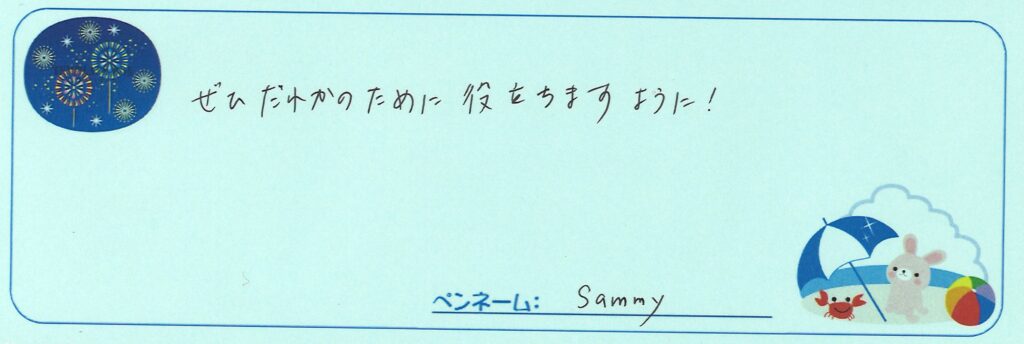 ぜひ だれかのために 役立ちますように!
ペンネーム: Sammy